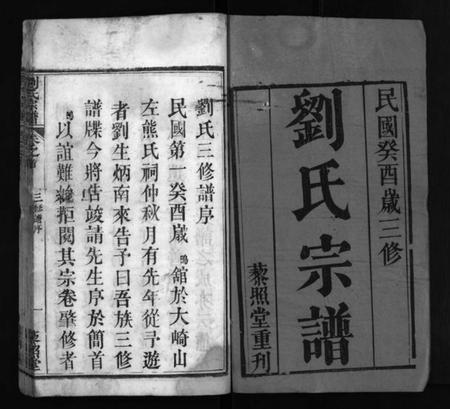 民國癸酉歲三修
劉氏宗譜
藜照堂重刊
劉氏三修譜序
民國第一癸酉歲 鳴館於大崎山
左熊氏祠仲秋月有先年從予遊
者劉生炳南來告予曰吾族三修
譜牒今將告竣請先生序於簡首
鳴以誼難辭拒閱其宗卷肇修者
劉氏宗譜
卷之首
三修譜序
一
藜照堂